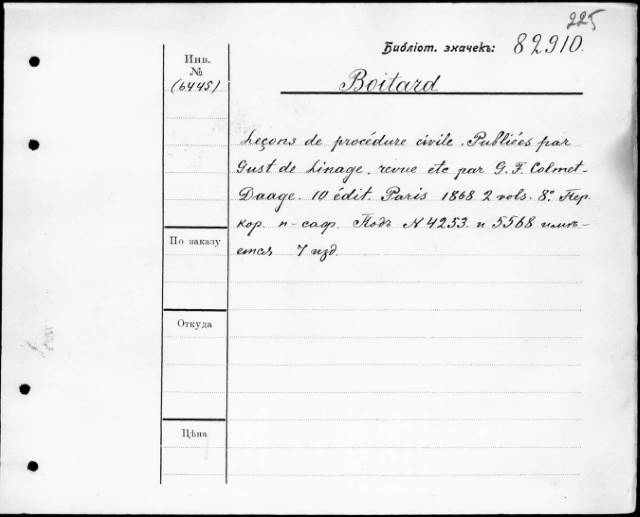 225
Библіот. значекъ: 82910.
Инв.
№
(6445)
Boitard
Leçons de procédure civile. Publiées par
Gust de Linage, revue etc par G. F. Colmet-
Daage. 10 édit. Paris 1868 2 vols. 8° Пер.
кор. п-саф. Подъ N 4253 и 5568 имѣ-
ется 7 изд.
По заказу
Откуда
Цѣна